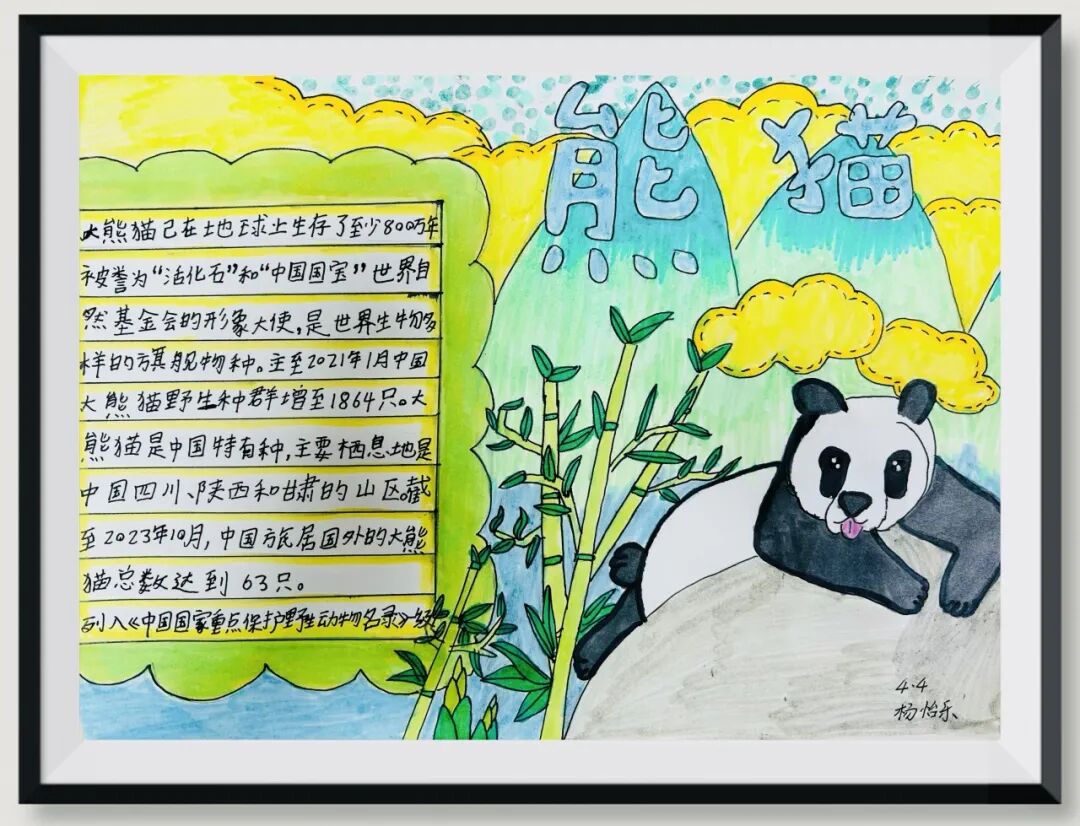 熊猫
大熊猫己在地球上生存了至少800万年
被誉为“活化石”和“中国国宝”世界自
然基金会的形象大使,是世界生物多
样的旗舰物种。主至2021年1月中国
大熊猫野生种群增至1864只。大
熊猫是中国特有种,主要栖息地是
中国四川、陕西和甘肃的山区。截
至2023年10月,中国旅居国外的大熊
猫总数达到63只。
列入《中国国家重点保护野生动物名录》级
4.4
杨怡乐